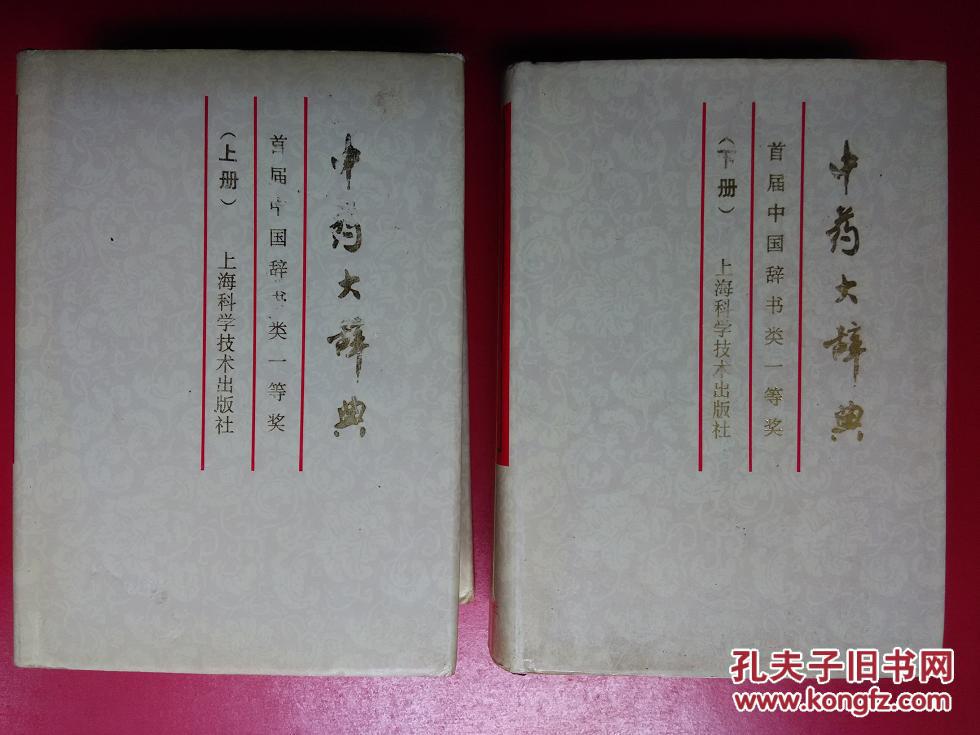 中药大辞典
首届中国辞书类一等奖
（上册） 上海科学技术出版社
中药大辞典
首届中国辞书类一等奖
（下册） 上海科学技术出版社
孔夫子旧书网
www.kongfz.com